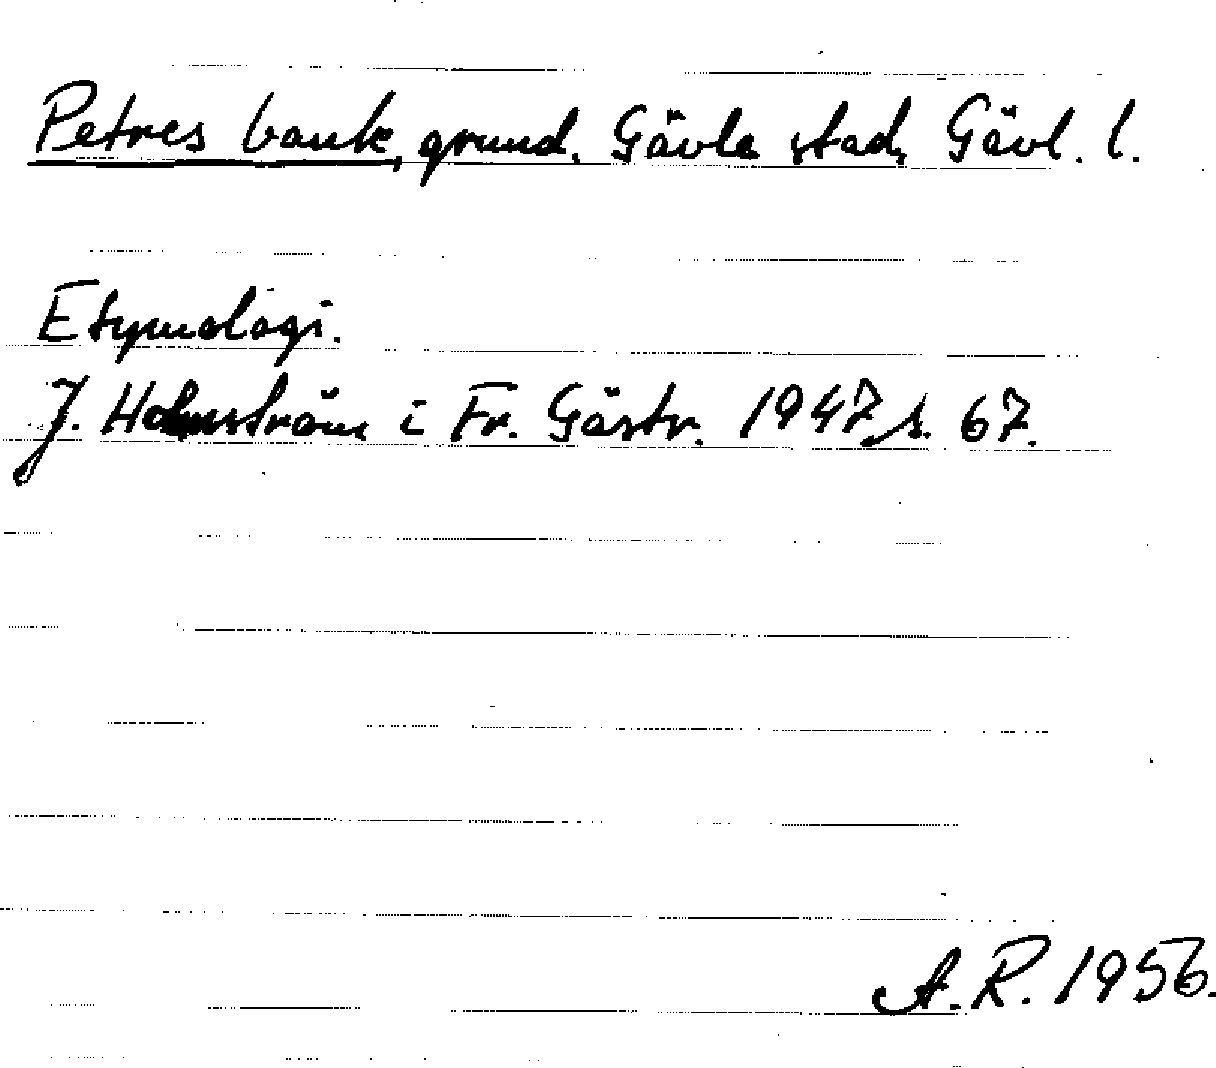 Petres bank, grund. Gävle stad, Gävl. l.
Etymologi.
J. Holmström i Fr. Gästr. 1947 s. 67.
A. R. 1956.